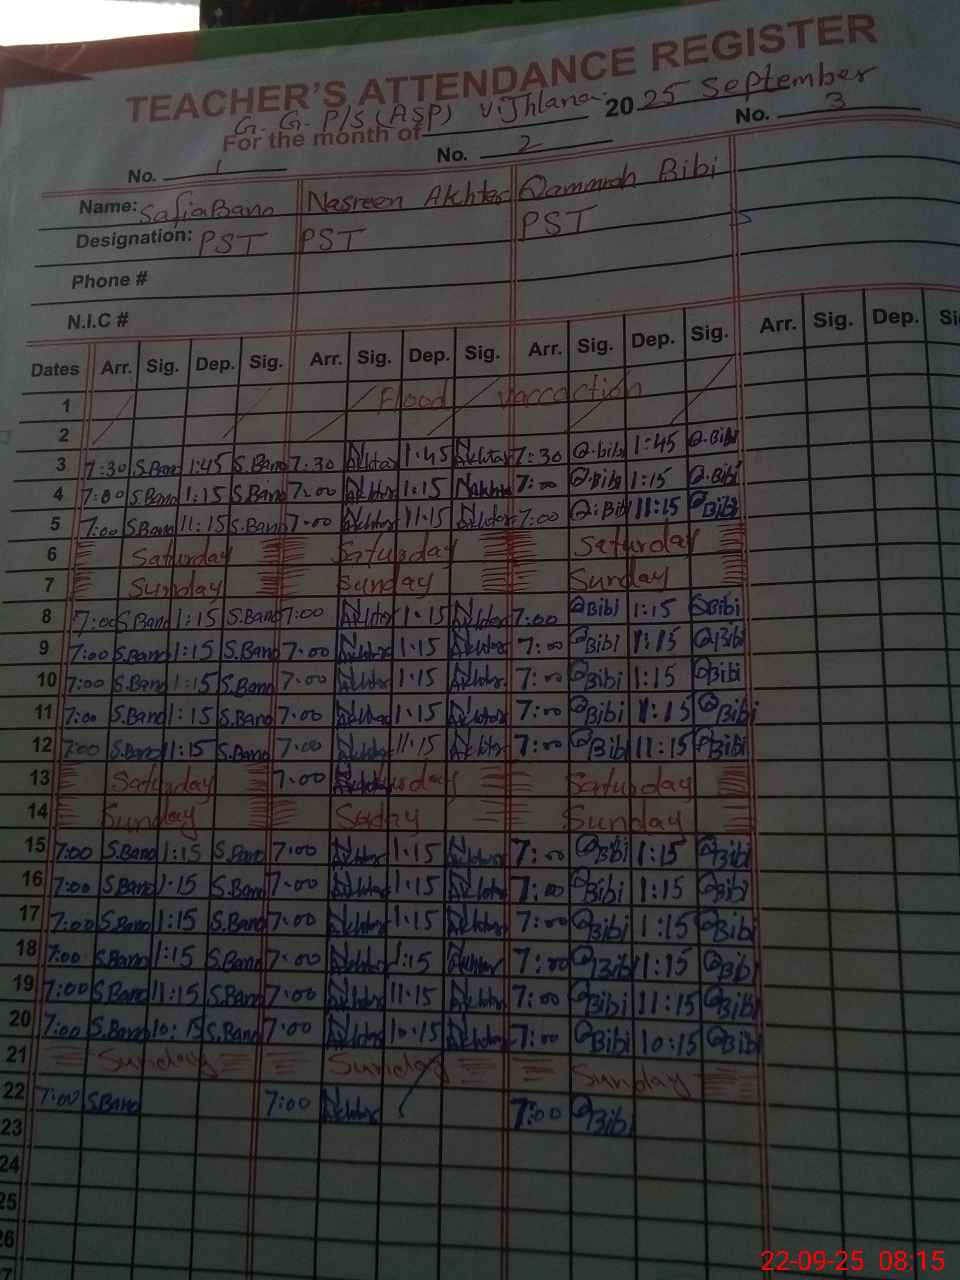 TEACHER'S ATTENDANCE REGISTER
G. G. P/S (ASP) V. Jhlana.
For the month of 2025 September
No. 1 No. 2 No. 3
Name: Safia Bano Nasreen Akhter Qammrah Bibi
Designation: PST PST PST
Phone #
N.I.C #
Dates Arr. Sig. Dep. Sig. Arr. Sig. Dep. Sig. Arr. Sig. Dep. Sig. Arr. Sig. Dep. Si
1 Flood
2
3 7:30 S.Bano 1:45 S.Bano 7:30 Akhtar 1:45 Akhtar 7:30 Q.bibi 1:45 Q.Bibi
4 7:00 S.Bano 1:15 S.Bano 7:00 Akhtar 1:15 NAkhtar 7:00 Q.Bibi 1:15 Q.Bibi
5 7:00 S.Bano 11:15 S.Bano 7:00 Akhtar 11:15 Akhtar 7:00 Q:Bibi 11:15 QBibi
6 Saturday Saturday Saturday
7 Sunday Sunday Sunday
8 7:00 S.Bano 1:15 S.Bano 7:00 Akhtar 1:15 Akhtar 7:00 QBibi 1:15 QBibi
9 7:00 S.Bano 1:15 S.Bano 7:00 Akhtar 1:15 Akhtar 7:00 QBibi 1:15 QBibi
10 7:00 S.Bano 1:15 S.Bano 7:00 Akhtar 1:15 Akhtar 7:00 QBibi 1:15 QBibi
11 7:00 S.Bano 1:15 S.Bano 7:00 Akhtar 1:15 Akhtar 7:00 QBibi 1:15 QBibi
12 7:00 S.Bano 11:15 S.Bano 7:00 Akhtar 11:15 Akhtar 7:00 QBibi 11:15 QBibi
13 Saturday 7:00 Saturday
14 Sunday Sunday
15 7:00 S.Bano 1:15 S.Bano 7:00 Akhtar 1:15 Akhtar 7:00 QBibi 1:15 QBibi
16 7:00 S.Bano 1:15 S.Bano 7:00 Akhtar 1:15 Akhtar 7:00 QBibi 1:15 QBibi
17 7:00 S.Bano 1:15 S.Bano 7:00 Akhtar 1:15 Akhtar 7:00 QBibi 1:15 QBibi
18 7:00 S.Bano 1:15 S.Bano 7:00 Akhtar 1:15 Akhtar 7:00 QBibi 1:15 QBibi
19 7:00 S.Bano 11:15 S.Bano 7:00 Akhtar 11:15 Akhtar 7:00 QBibi 11:15 QBibi
20 7:00 S.Bano 10:15 S.Bano 7:00 Akhtar 10:15 Akhtar 7:00 QBibi 10:15 QBibi
21 Sunday Sunday Sunday
22 7:00 S.Bano 7:00 Akhtar 7:00 QBibi
23
24
25
26
22-09-25 08:15